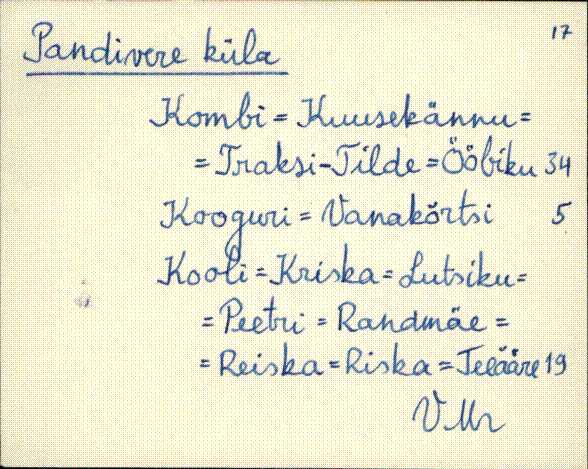 17
Pandivere küla
Kombi = Kuusekännu =
= Traksi-Tilde = Ööbiku 34
Kooguri = Vanakõrtsi 5
Kooli = Kriska = Lutsiku =
= Peetri = Randmäe =
= Reiska = Riska = Teeääre 19
V Mr